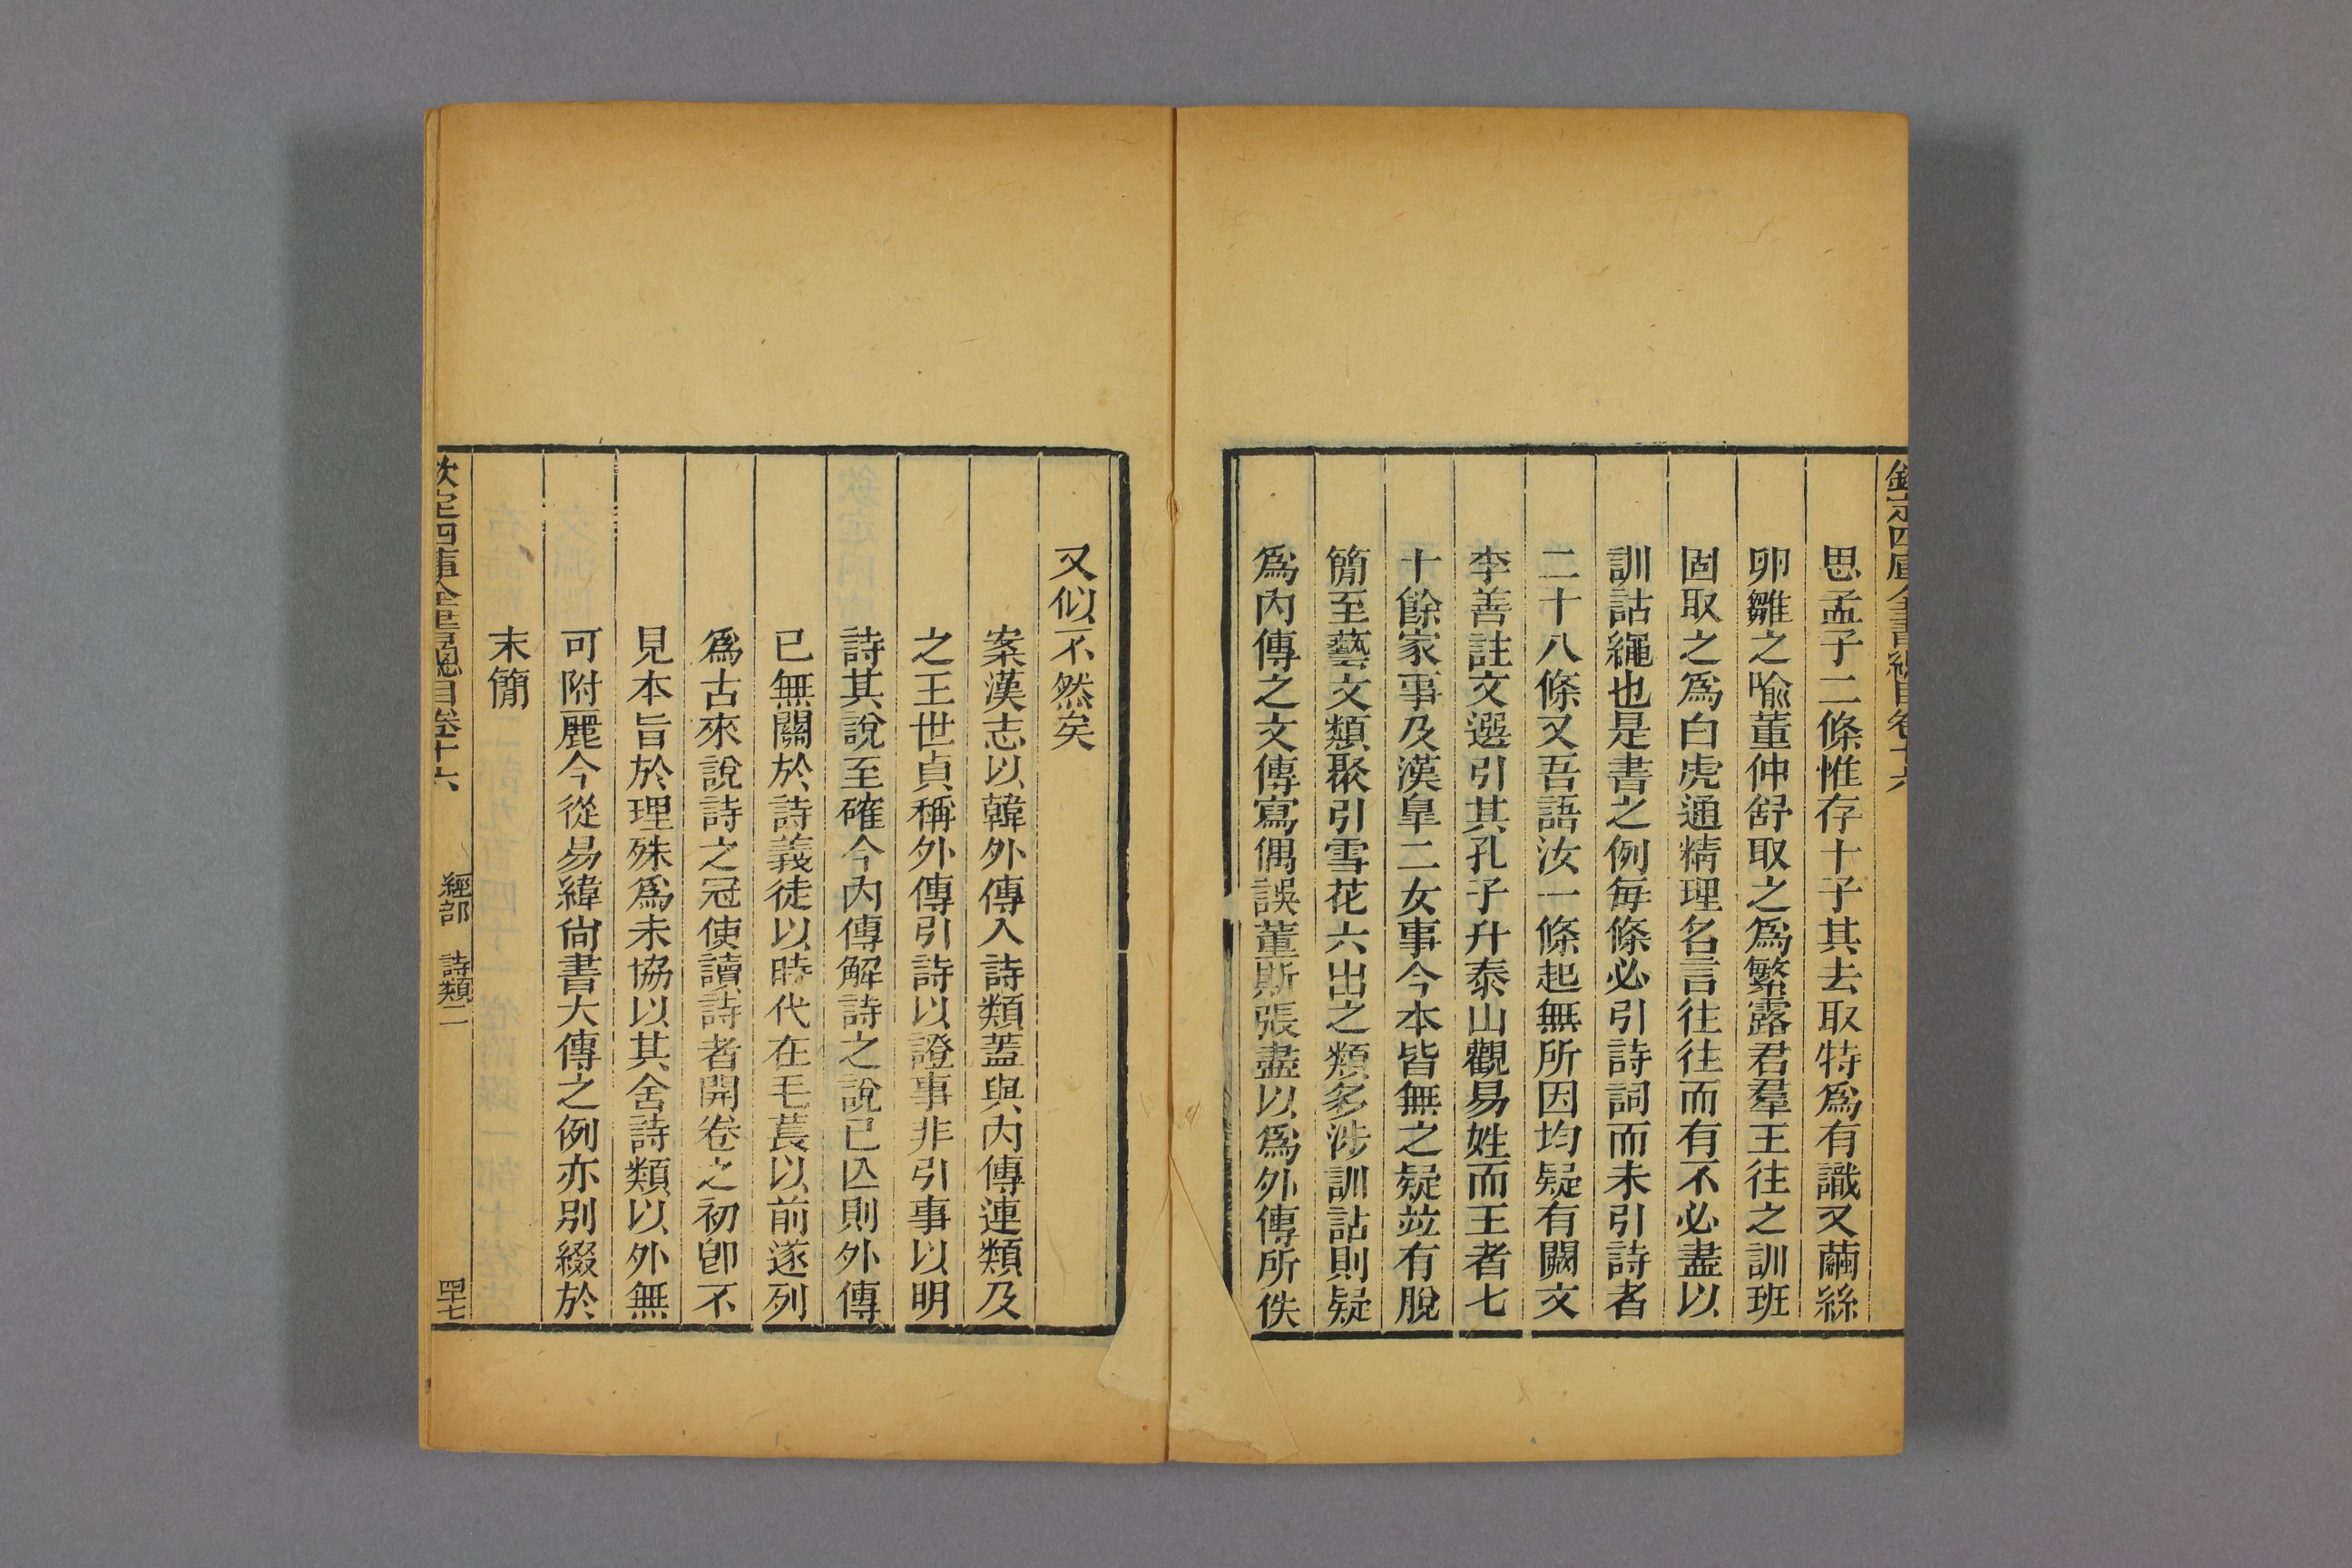 欽定四庫全書總目卷十六
思孟子二條惟存十子其去取特爲有識又繭絲
卵雛之喻董仲舒取之爲繁露君羣王往之訓班
固取之爲白虎通精理名言往往而有不必盡以
訓詁繩也是書之例每條必引詩詞而未引詩者
二十八條又吾語汝一條起無所因均疑有闕文
李善註文選引其孔子升泰山觀易姓而王者七
十餘家事及漢皐二女事今本皆無之疑竝有脫
簡至藝文類聚引雪花六出之類多涉訓詁則疑
爲內傳之文傳寫偶誤董斯張盡以爲外傳所佚
又似不然矣
案漢志以韓外傳入詩類蓋與內傳連類及
之王世貞稱外傳引詩以證事非引事以明
詩其說至確今內傳解詩之說已亾則外傳
已無關於詩義徒以時代在毛萇以前遂列
爲古來說詩之冠使讀詩者開卷之初卽不
見本旨於理殊爲未協以其舍詩類以外無
可附麗今從易緯尙書大傳之例亦別綴於
末簡
欽定四庫全書總目卷十六　經部　詩類二　四七